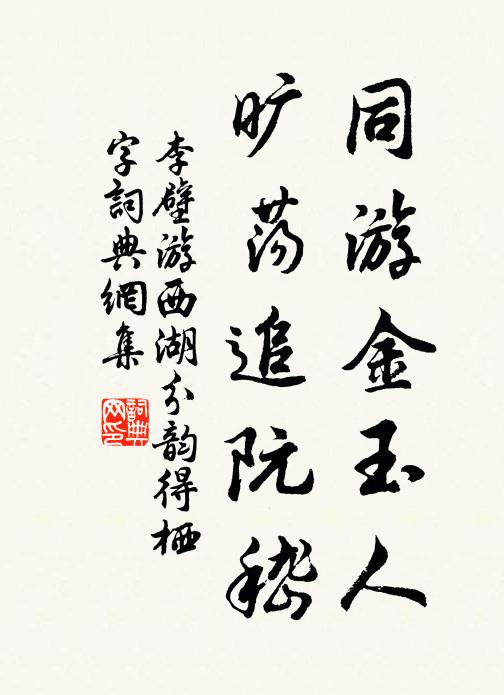 同游金玉人
旷荡追阮嵇
李壁游西湖分韵得栖
字詞典網集
詞典
网印